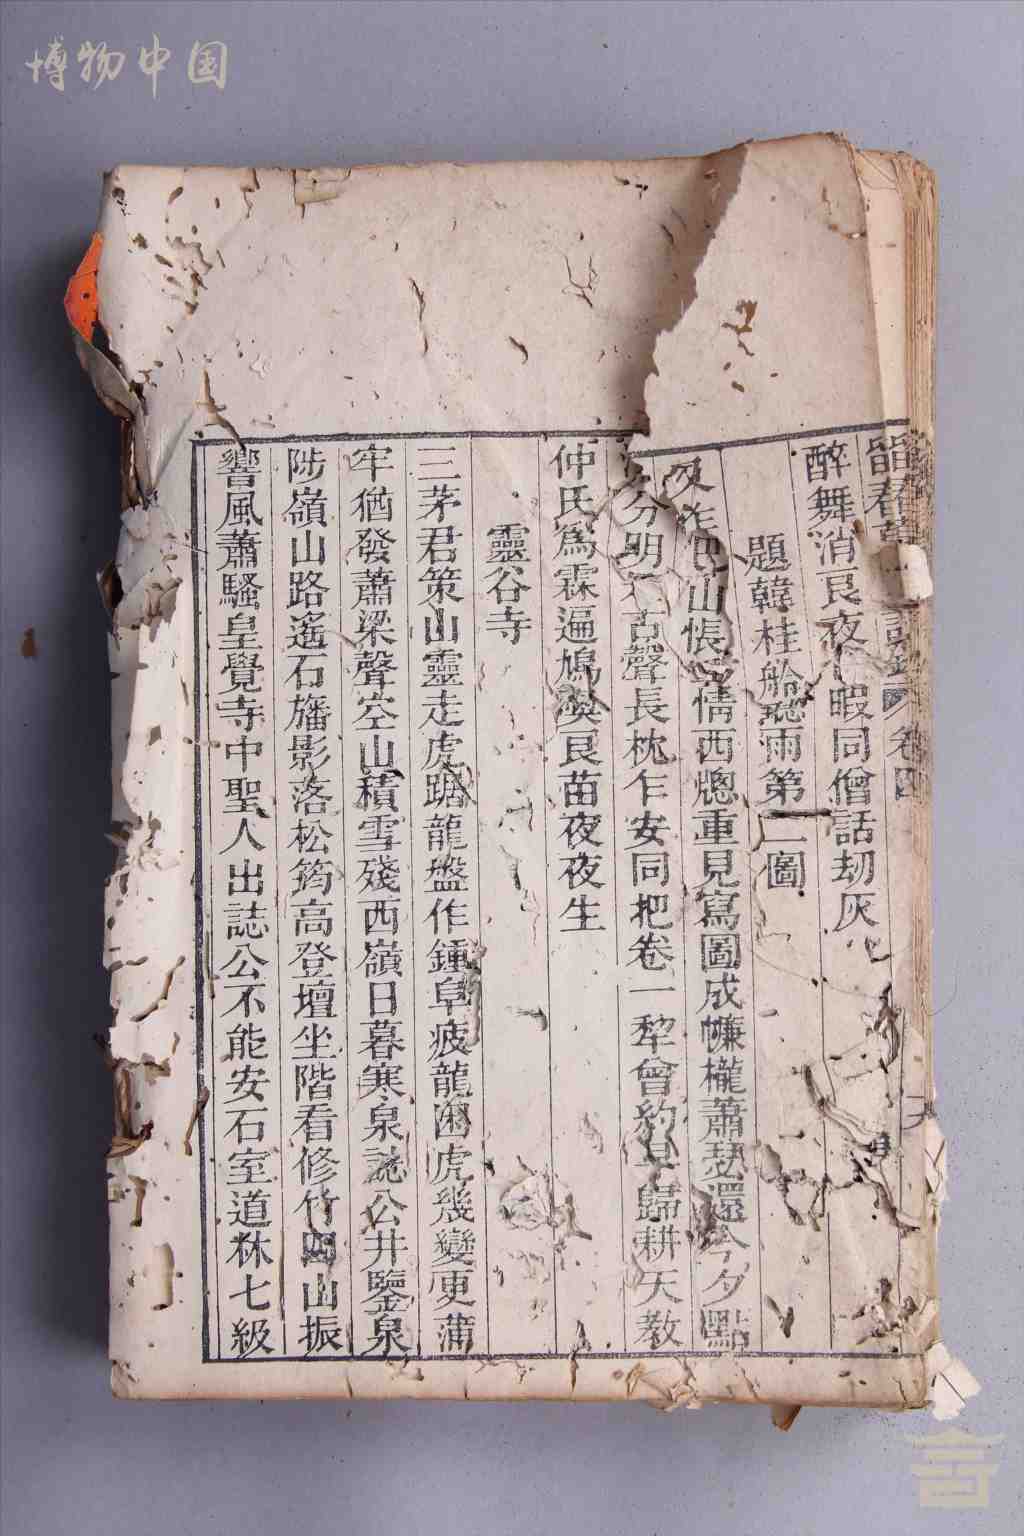 博物中国
醉舞消艮夜暇同僧話劫灰
題韓桂舲聽雨第二圖
巴山悵情西牕重見寫圖成㡘櫳蕭瑟還今夕點
分明聲長枕乍安同把卷一犂曾約歸耕天教
仲氏爲霖遍鳩艮苗夜夜生
靈谷寺
三茅君策山靈走虎踞龍盤作鍾阜疲龍困虎幾變更蒲
牢猶發蕭梁聲空山積雪殘西嶺日暮寒泉誌公井鑒泉
陟嶺山路遙石旛影落松筠高登壇坐階看修竹四山振
響風蕭騷皇覺寺中聖人出誌公不能安石室道林七級